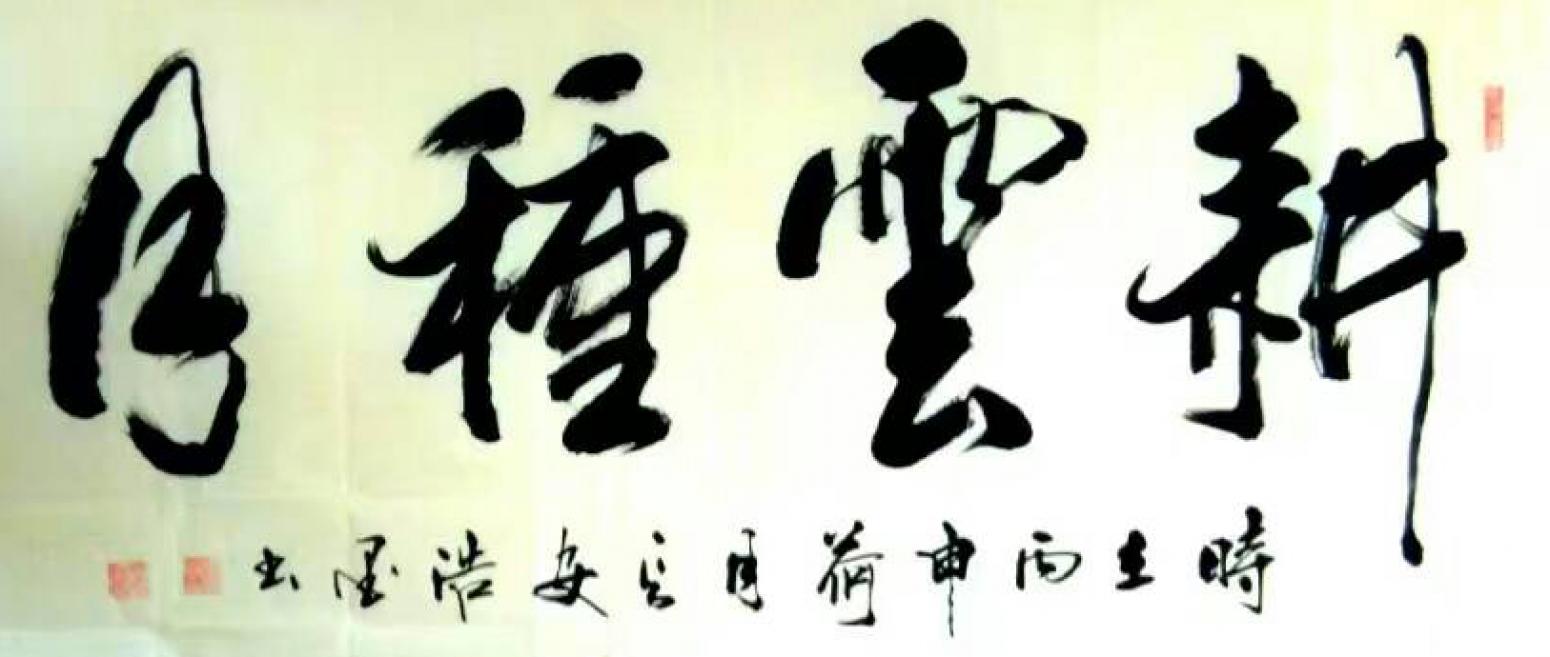 耕雲種月
時在丙申荷月長安浩墨书